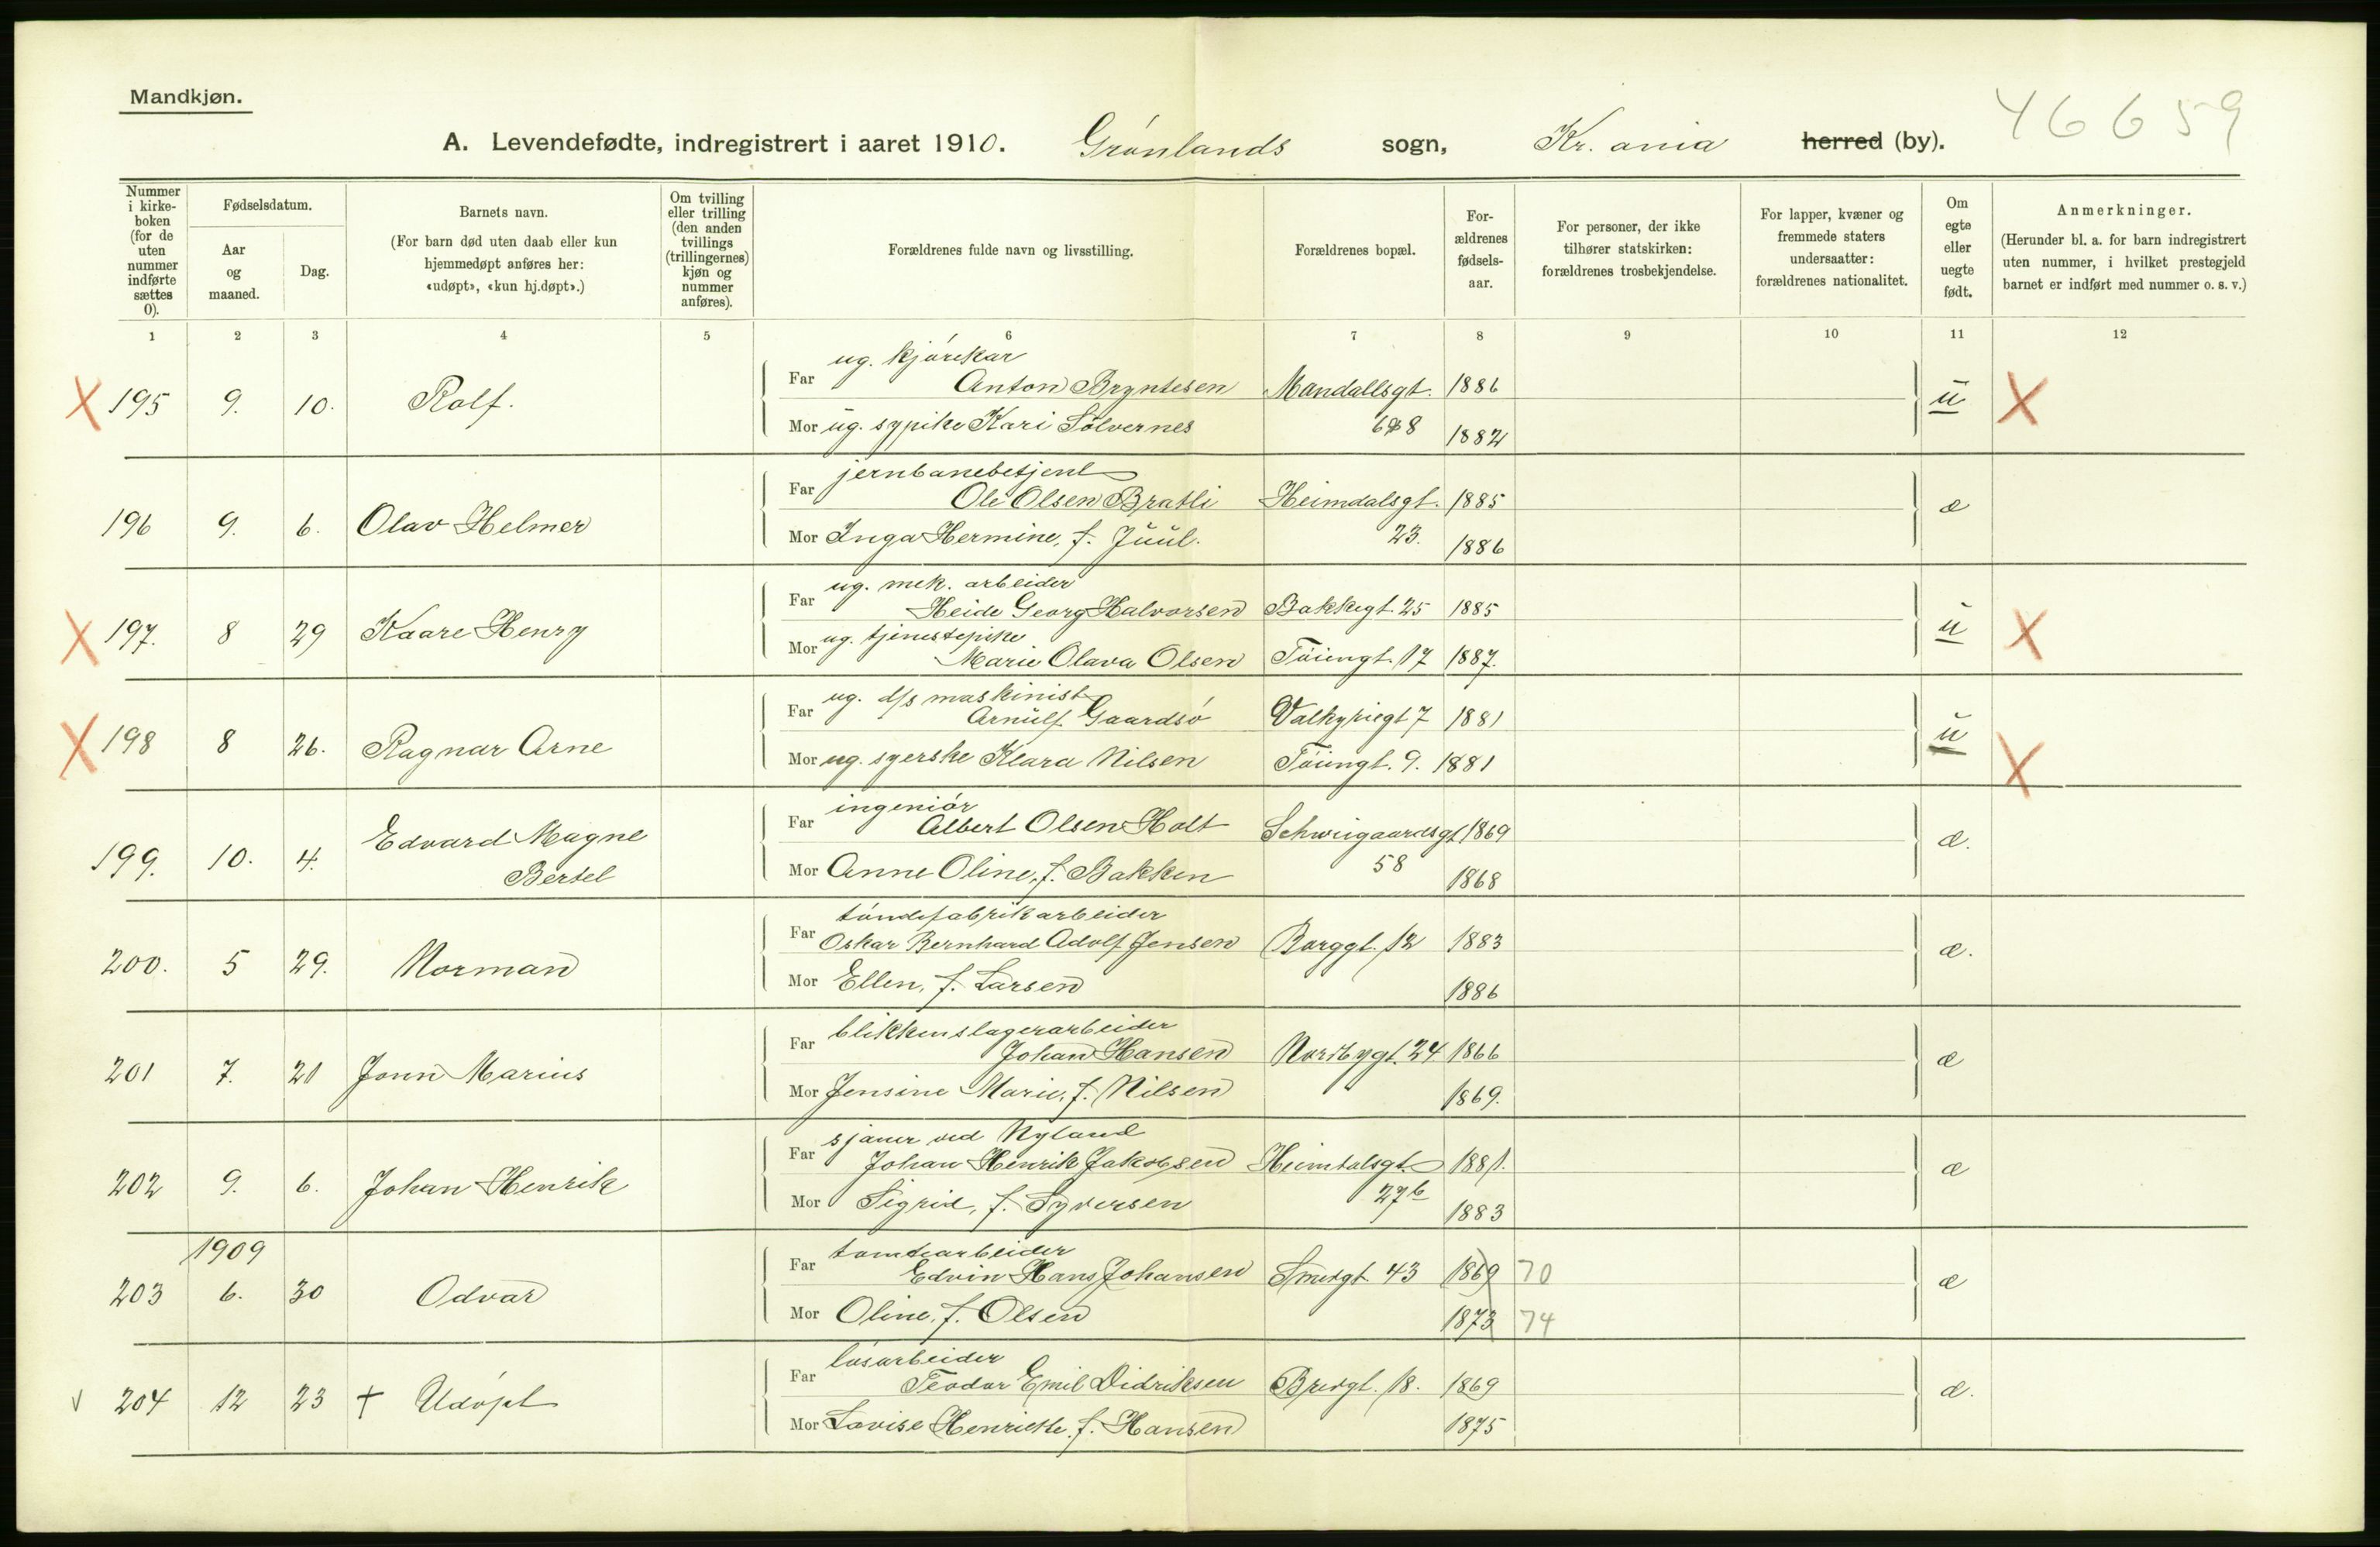 Mandkjøn.
A. Levendefødte, indregistrert i aaret 1910. Grønlands sogn, Kr. ania herred (by). 46659
Nummer i kirke-boken (for de uten nummer indførte sættes 0).
Fødselsdatum.
Aar og maaned.
Dag.
Barnets navn.
(For barn død uten daab eller kun hjemmedøpt anføres her: «udøpt», «kun hj.døpt».)
Om tvilling eller trilling (den anden tvillings (trillingernes) kjøn og nummer anføres).
Forældrenes fulde navn og livsstilling.
Forældrenes bopæl.
For-ældrenes fødsels-aar.
For personer, der ikke tilhører statskirken: forældrenes trosbekjendelse.
For lapper, kvæner og fremmede staters undersaatter: forældrenes nationalitet.
Om egte eller uegte født.
Anmerkninger.
(Herunder bl. a. for barn indregistrert uten nummer, i hvilket prestegjeld barnet er indført med nummer o. s. v.)
1 2 3 4 5 6 7 8 9 10 11 12
ug. kjørekar
X 195 9. 10. Rolf. Far Anton Bryntesen Mandallsgt. 1886 u X
Mor ug. sypike Kari Sølvernes 8 1882
jernbanebetjent
196 9. 6. Olav Helmer Far Ole Olsen Bratli Heimdalsgt. 1885 æ
Mor Inga Hermine, f. Juul. 23. 1886
ug. mek. arbeider
X 197. 8 29 Kaare Henry Far Heide Georg Halvorsen Bakkegt. 25 1885 u X
ug. tjenestepike
Mor Marie Olava Olsen Tøiengt. 17 1887.
ug. d/s maskinist
X 198 8 26. Ragnar Arne Far Arnulf Gaardsø Valkyriegt 7 1881 u X
Mor ug. syerske Klara Nilsen Tøiengt. 9. 1881
ingeniør
199. 10. 4. Edvard Magne Far Albert Olsen Holt Schweigaardsgt 1869 æ.
Bertel Mor Anne Oline, f. Bakken 58 1868
tøndefabrikarbeider
200. 5 29. Norman Far Oskar Bernhard Adolf Jensen Borggt. 12 1883 æ.
Mor Ellen, f. Larsen 1886
blikkenslagerarbeider
201 7. 21 Jonn Marius Far Johan Hansen Nordbygt. 24 1866 æ
Mor Jensine Marie, f. Nilsen 1869.
sjauer ved Nyland
202 9. 6. Johan Henrik Far Johan Henrik Jakobsen Heimdalsgt. 1881. æ
Mor Sigrid, f. Syversen 27b 1883
1909 tomtearbeider
203 6. 30 Odvar Far Edvin Hans Johansen Smedgt. 43 1869 70 æ
Mor Oline, f. Olsen 1873 74
løsarbeider
v 204 12 23 + Udøpt Far Teodor Emil Didriksen Bredgt. 18. 1869 æ.
Mor Lovise Henriette, f. Hansen 1875